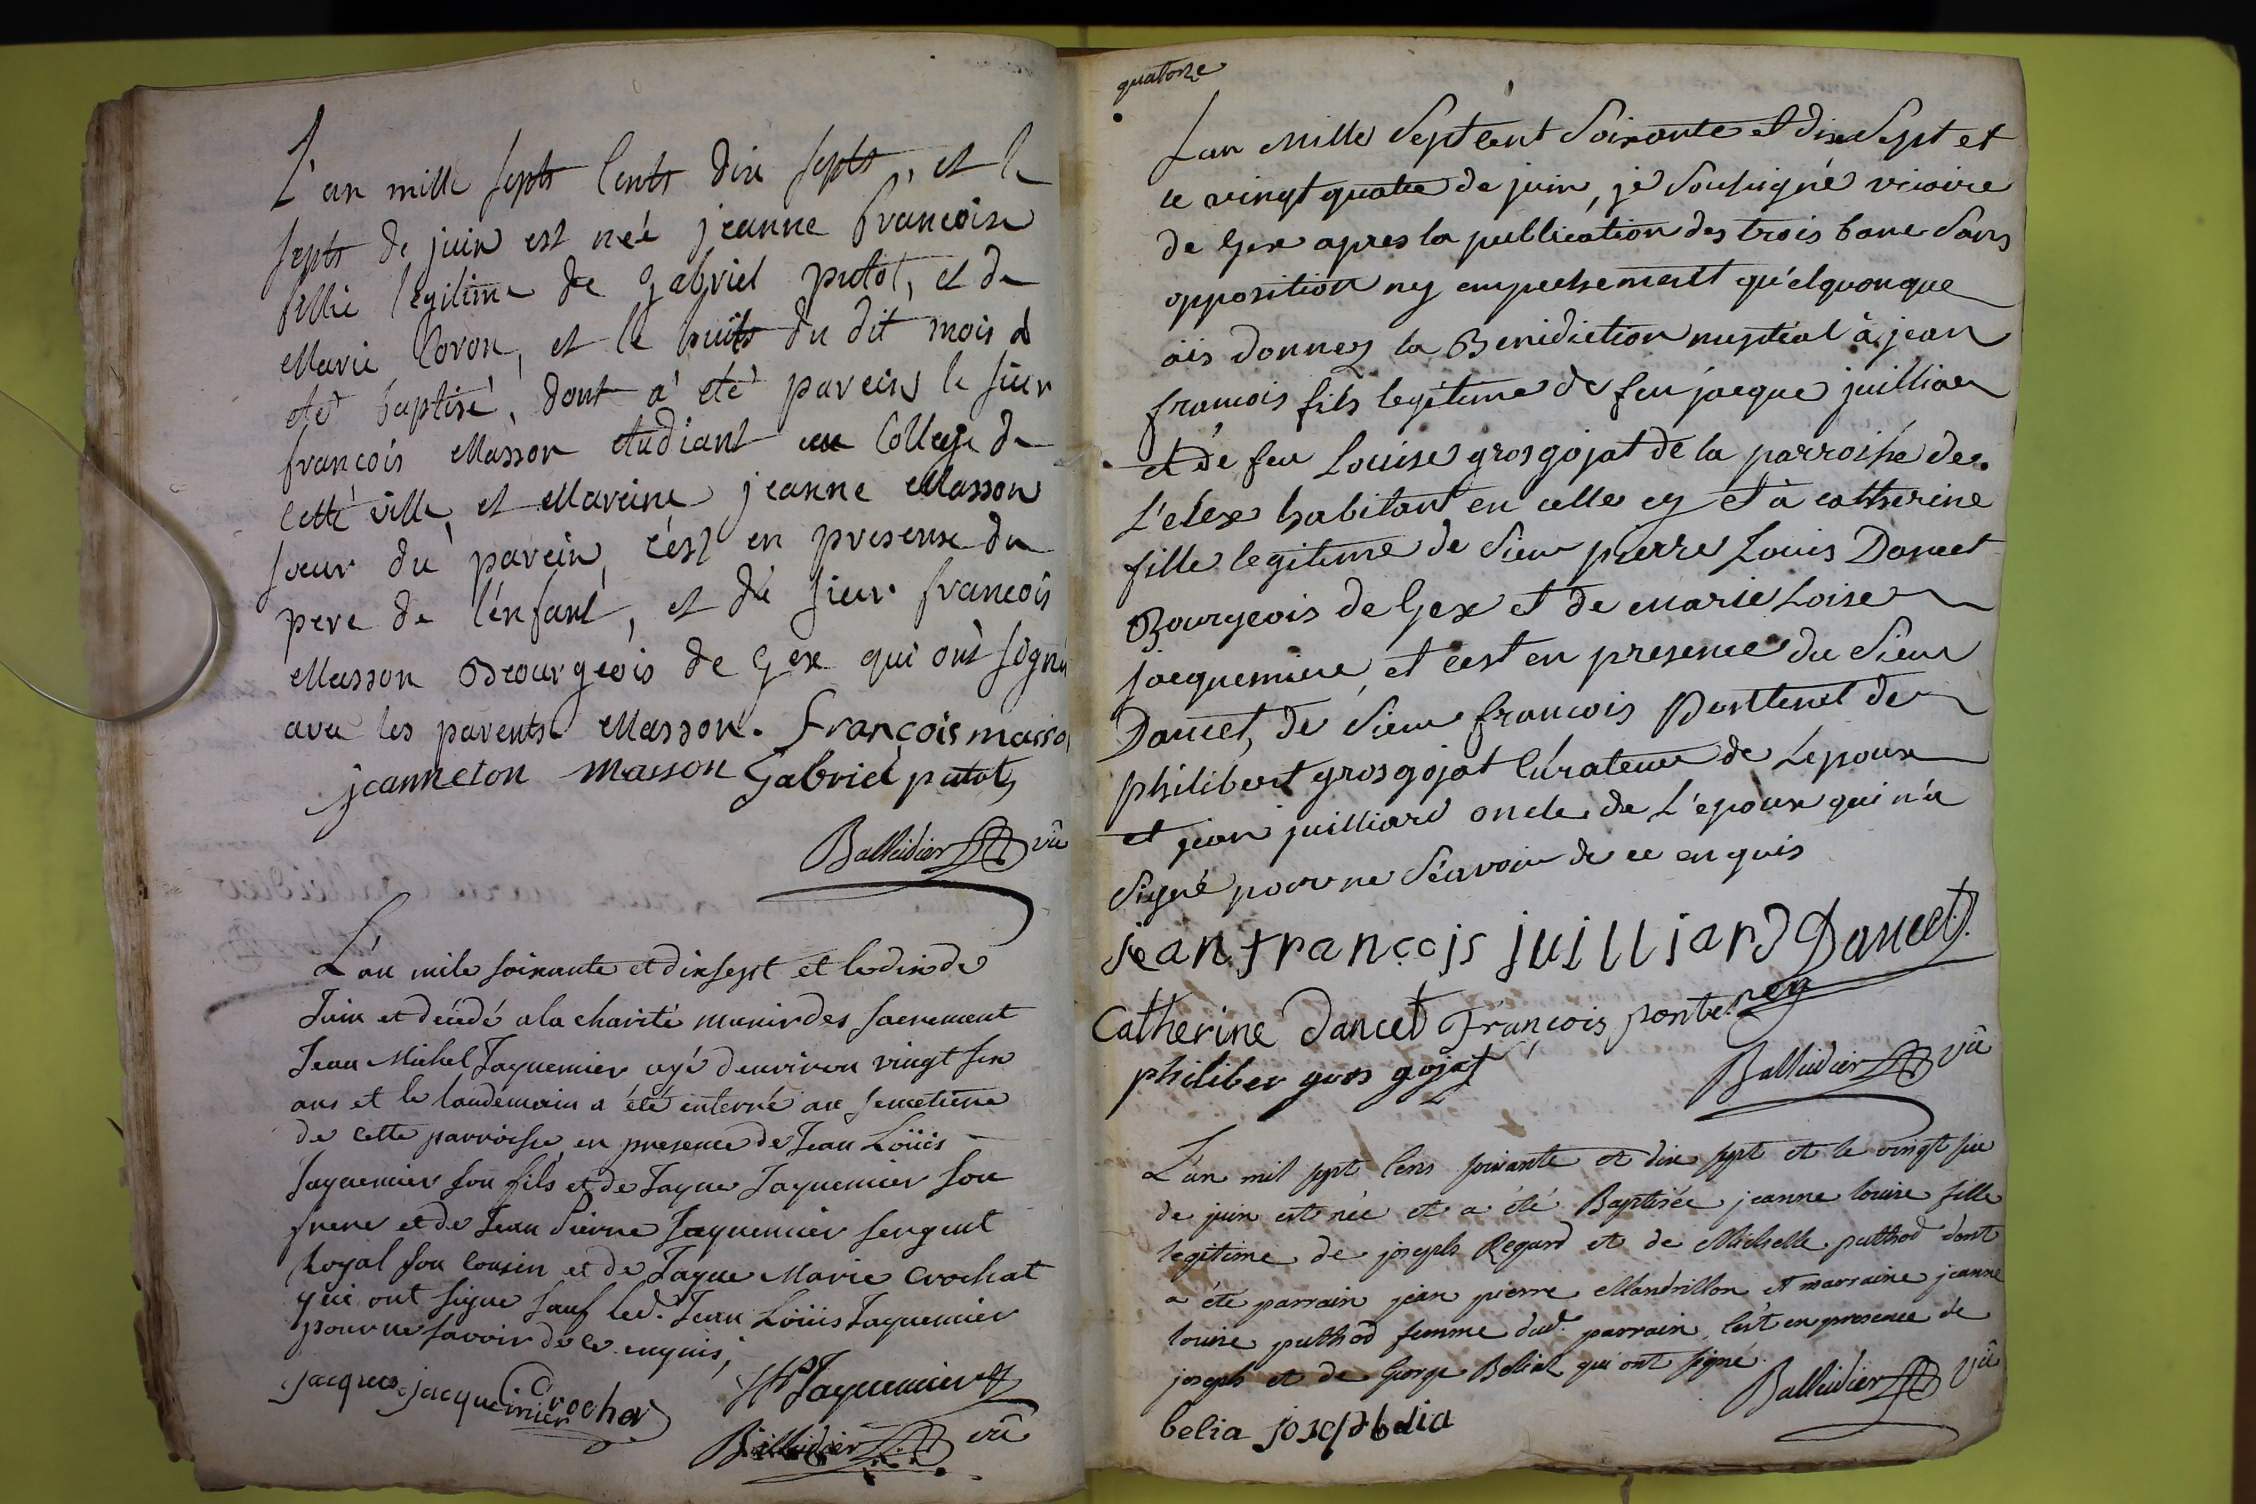 L'an mille septs Cents dix septs, et le
septs de juin est néé jeanne francoise
fillie legitime de gabriel putot, et de
Marie Coron, et le huits du dit mois a
eté baptisé, dont a eté parein le sieur
françois Masson etudiant au College de
cette ville, et Mareine jeanne Masson
soeur du parein, c'ést en presense du
pere de l'énfant, et du sieur francois
Masson Bourgeois de Gex qui ont signé
avec les parents Masson. françois masso
jeanneton masson Gabriel putot
Balleidier vû
L'an mile soixante et dixsept et le dix de
Juin et décédé a la charité munir des sacrement
Jean Michel Jaquemier agé d'environ vingt six
ans et le landemain a été enterré au semetiere
de cette parroisse en presence de Jean Loüis
Jaquemier son fils et de Jaque Jaquemier son
frere et de Jean Pierre Jaquemier sergent
Royal son cousin et de Jaque Marie Crochat
qui ont signe sauf led. Jean Loüis Jaquemier
pour ne savoir de ce enquis,
jacques jacquemier Crochat JPJaquemier
Balleidier vû
quatorze
Lan Mille Septcent Soixante et dixSept et
le vingt quatre de juin, je Soussigné vicaire
de Gex apres la publication des trois banc Sans
opposition ny empechement qu'elquonque
ais donnez la Benediction nuptial à jean
francois fils legitime de feu jacque juilliar
et de feu Louise grosgojat de la parroisse de
L'elex habitant en celle cy et à catherine
fille legitime de Sieur pierre Louis Dancet
Bourgeois de Gex et de marie Loise
jacquemier, et cest en presence du Sieur
Dancet, de Sieur francois Pontenel de
philibert grosgojat Curateur de Lepoux
et jean juilliard oncle de L'epoux qui n'a
Signé pour ne Séavoir de ce enquis
jean françois juilliard Dancet
Catherine Dancet François ponte
philiber gros gojat
Balleidier vû
L'an mil sept Cens soixante et dix sept et le vingt six
de juin est née et a été Baptisée jeanne louise fille
legitime de joseph Regard et de Michelle puthod dont
a éte parrain jean pierre Mandrillon et marraine jeanne
louise puthod femme dud. parrain, c'est en presence de
joseph et de George Beliat qui ont signé.
Balleidier vû
belia joseph belia